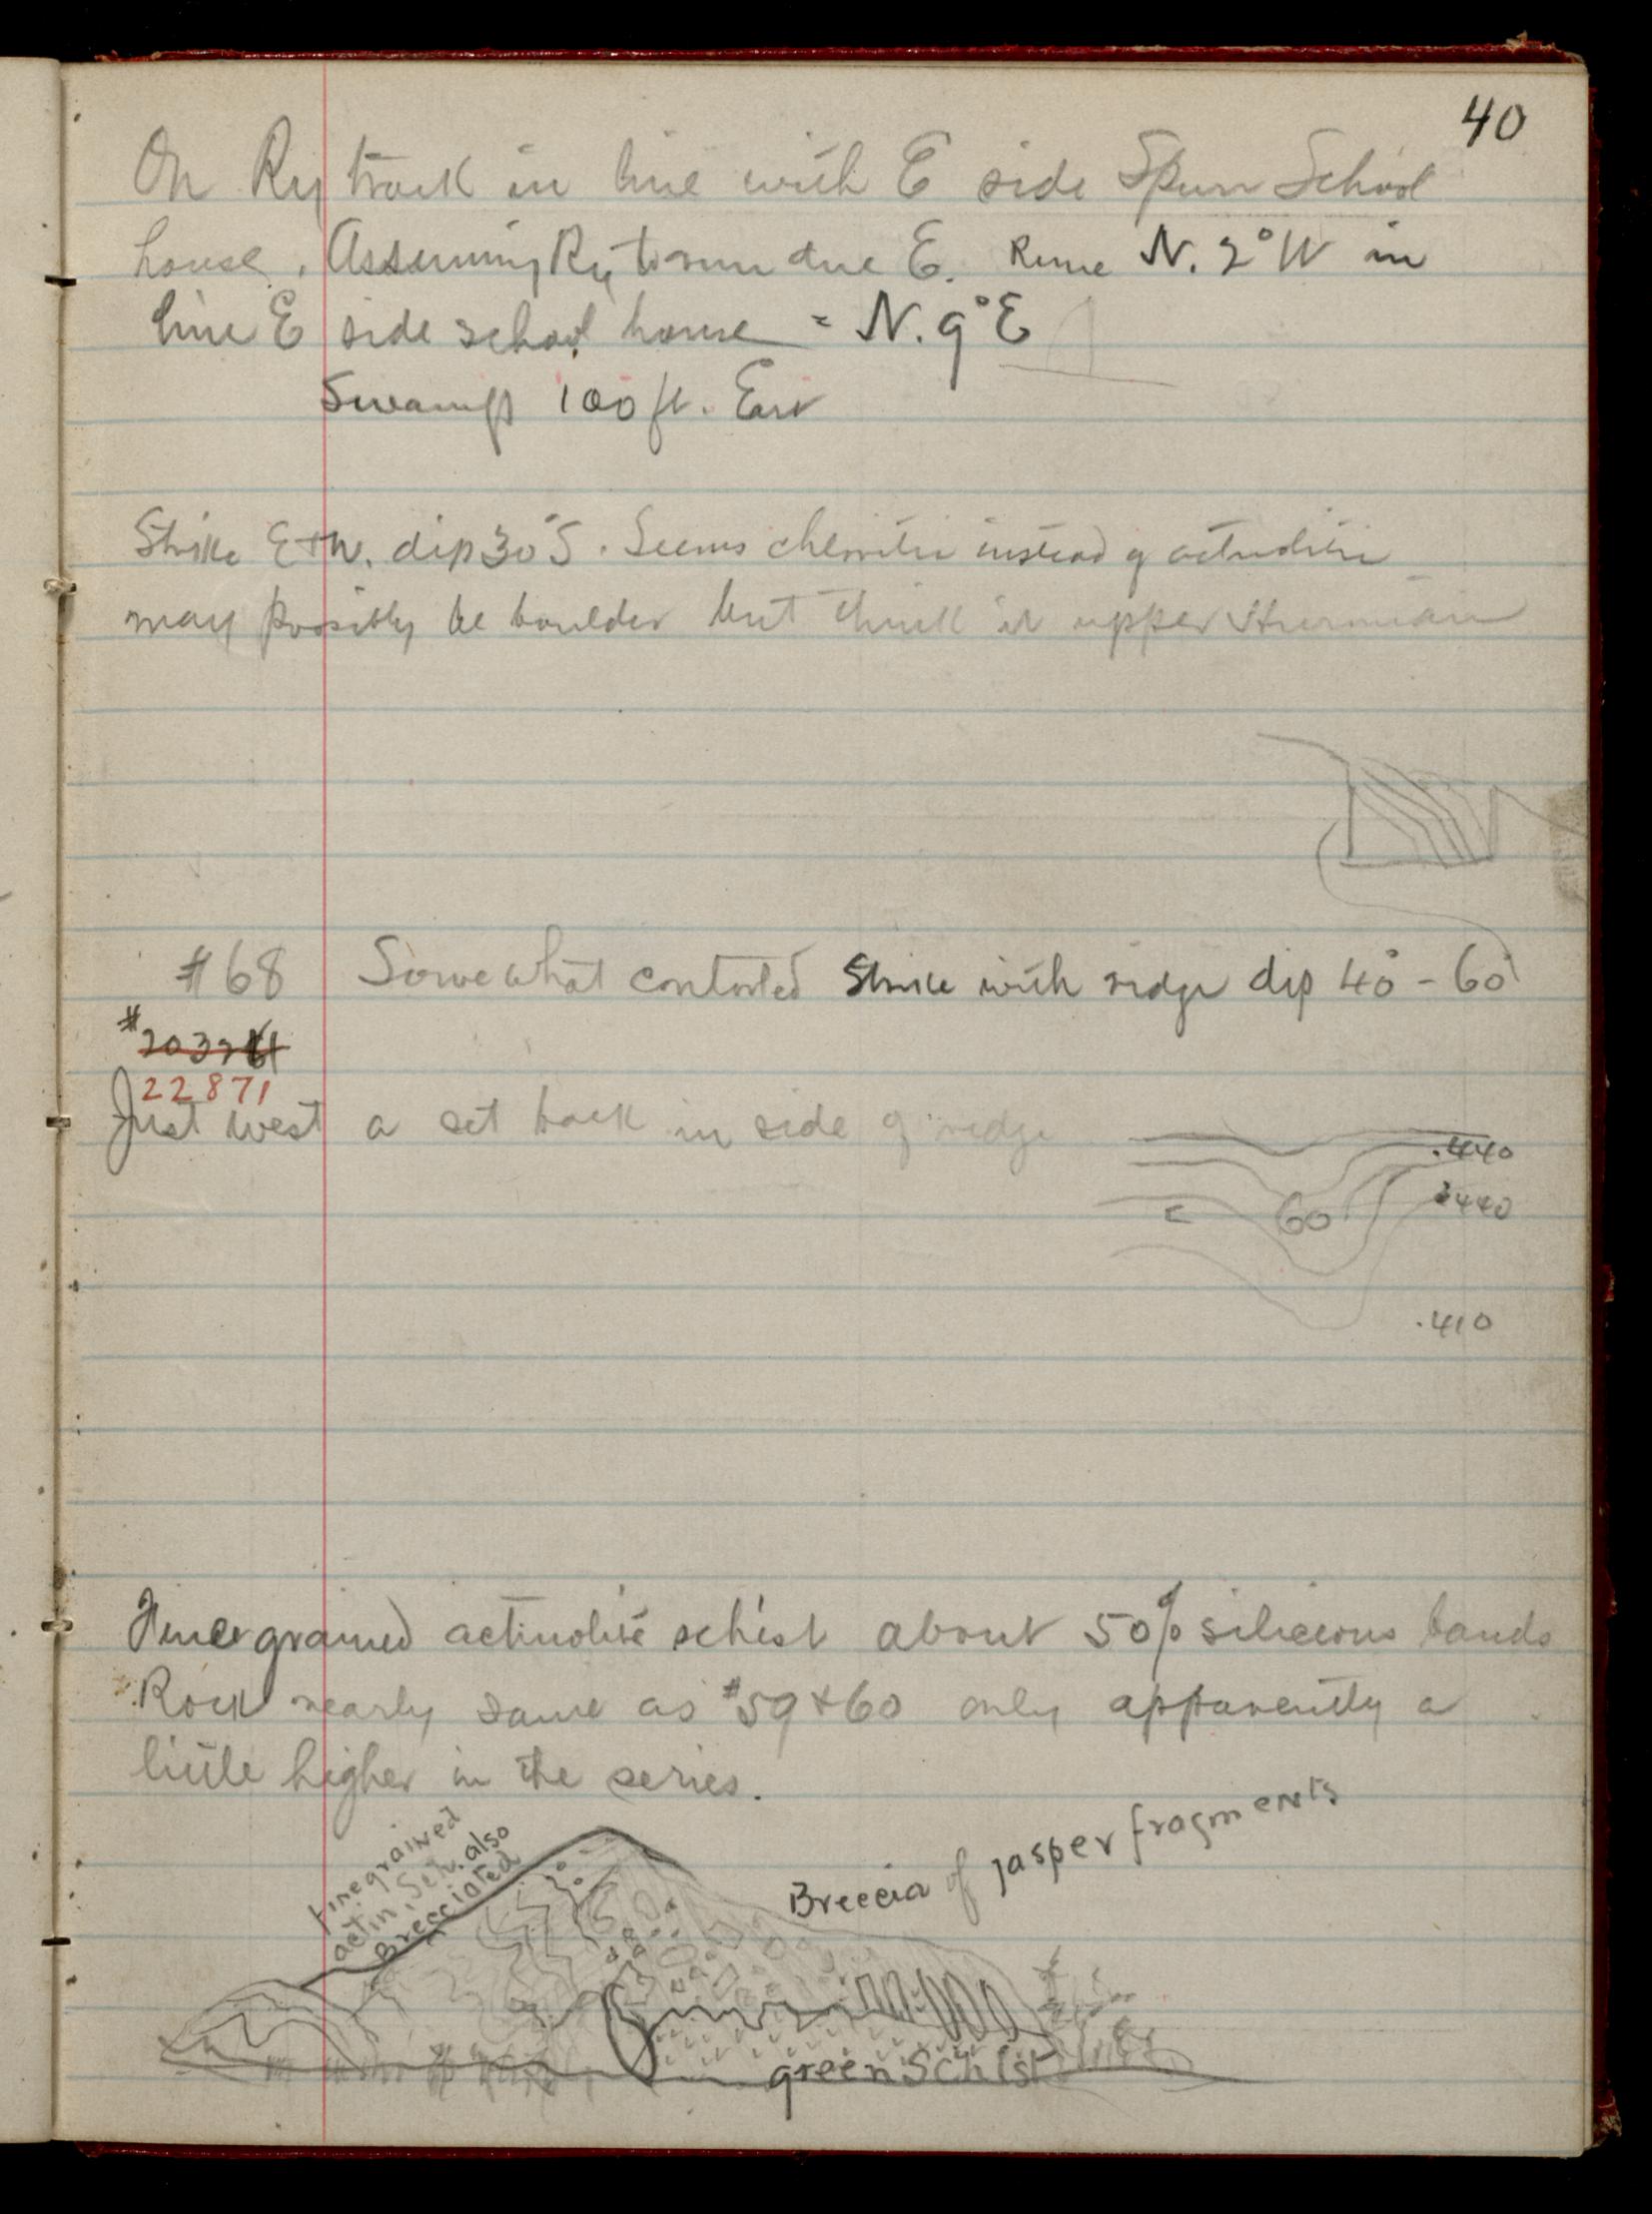 40
On Ry track in line with E side Spurr School
house. Assuming Ry to run due E. Rume N. 2° W in
line E side school house = N. 9° E
Swamp 100 ft. East
Strike E + W. dip 30° S. Seems chloritic instead of actinolitic
may possibly be boulder but think it upper Huronian
#68 Somewhat contorted Strike with ridge dip 40° - 60°
#
22871
Just west a set back in side of ridge
.440
60
.410
Finer grained actinolite schist about 50% silicious bands
Rock nearly same as #59 + 60 only apparently a
little higher in the series.
Finegrained
actin. Sch. also
Brecciated
Breccia of jasper fragments
green Schist